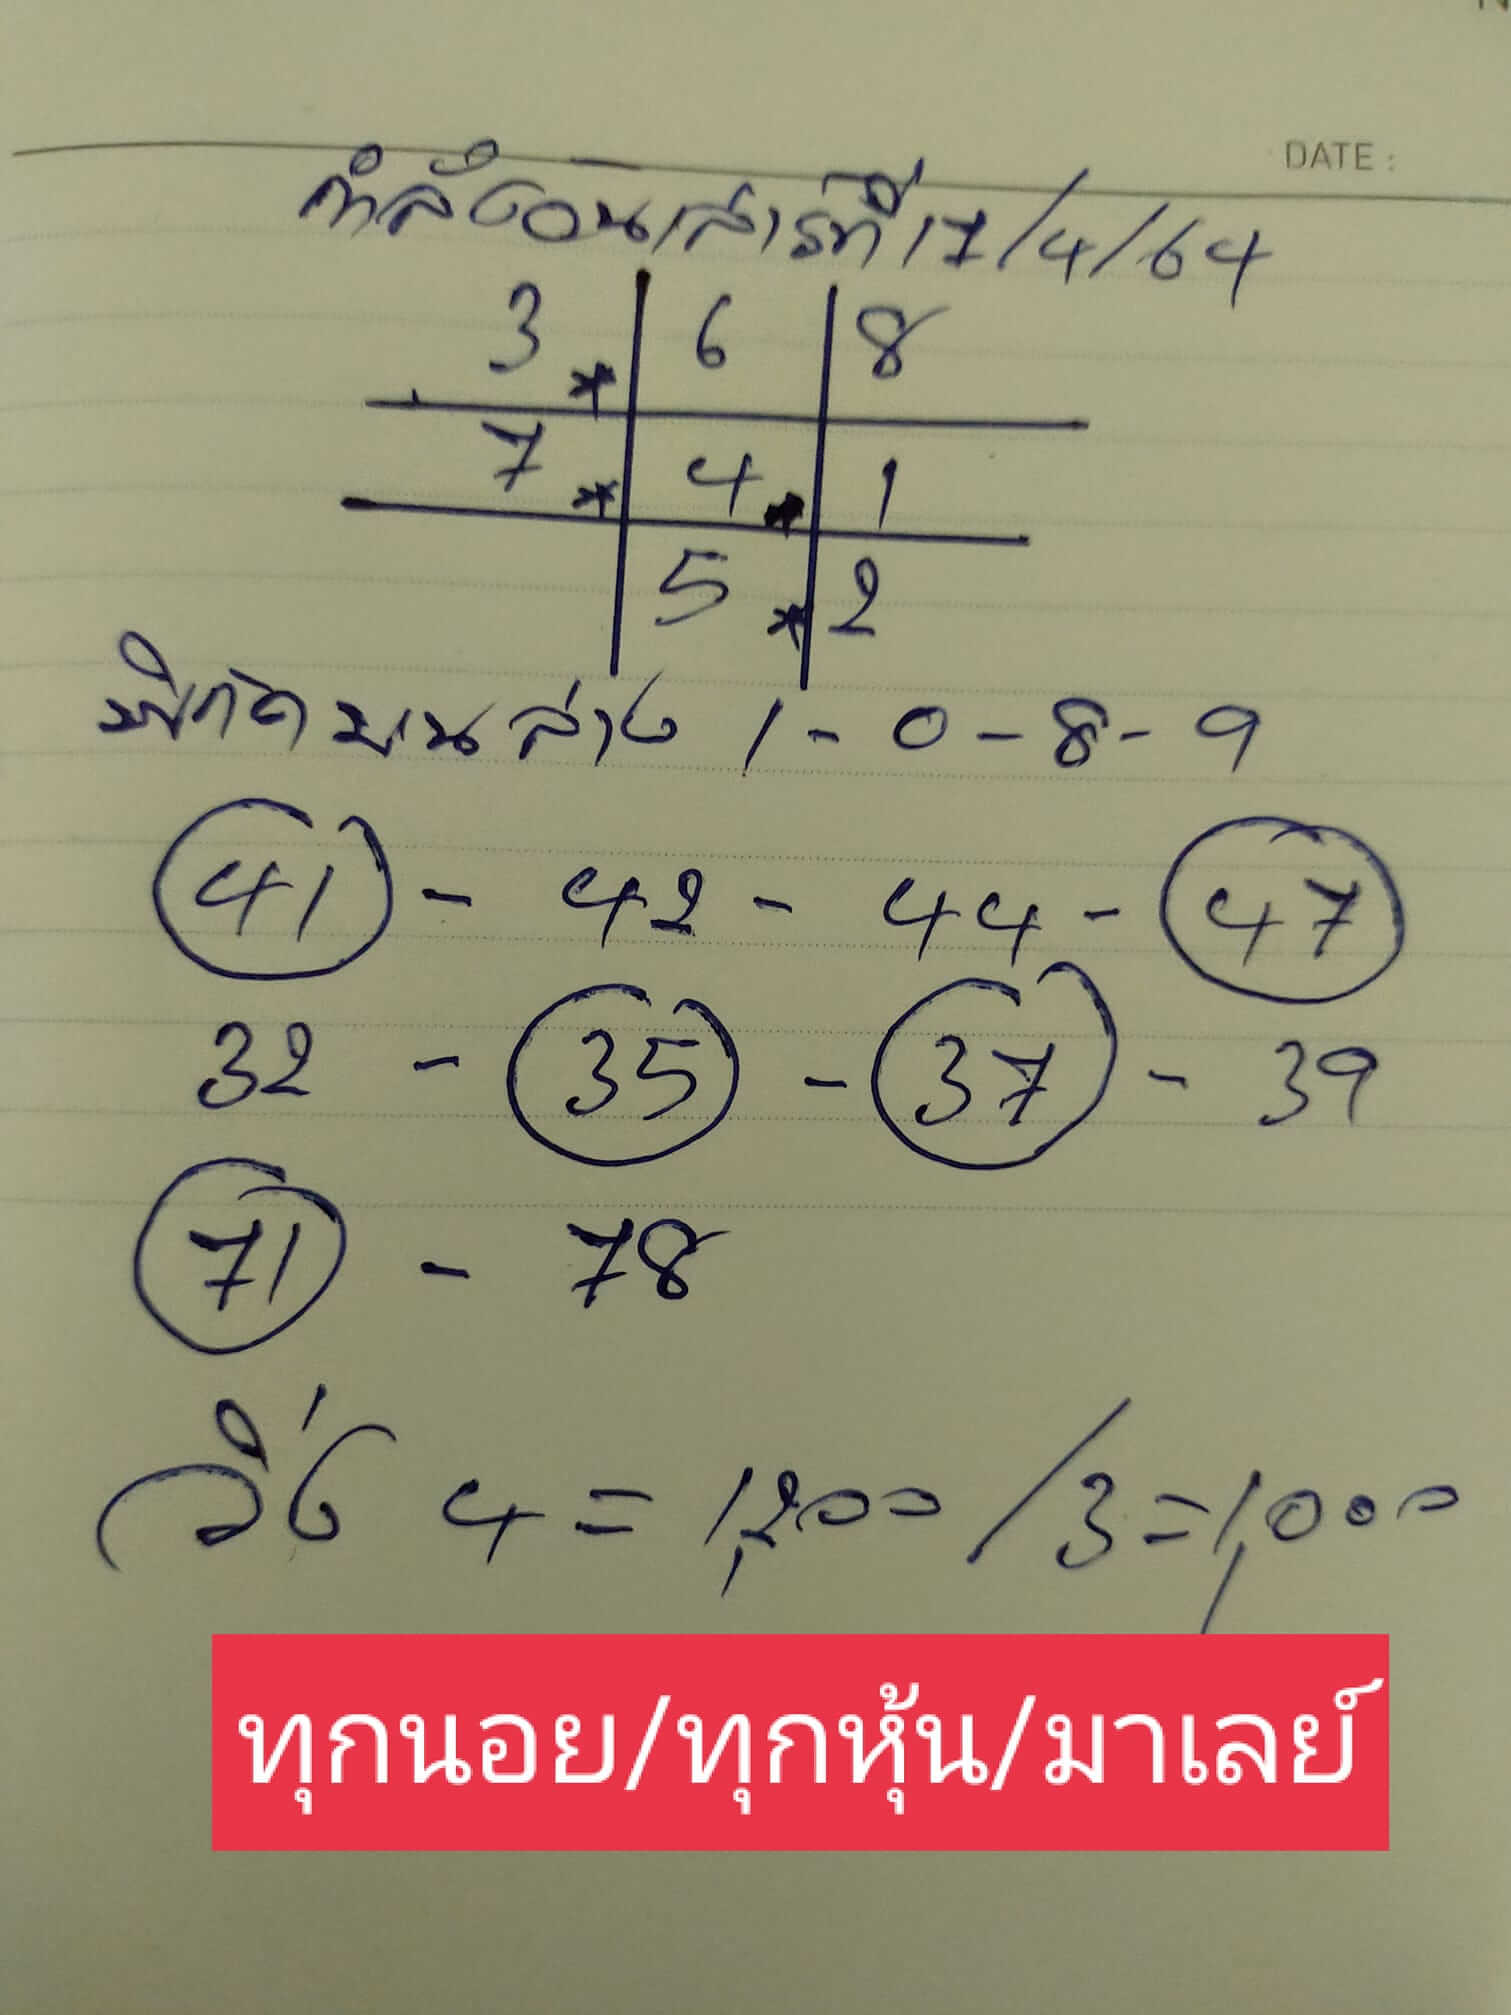 DATE :
กำลังวันเสาร์ที่ 17/4/64
3 * 6 8
7 * 4 * 1
5 * 2
พิกัด บน ล่าง 1 - 0 - 8 - 9
41 - 42 - 44 - 47
32 - 35 - 37 - 39
71 - 78
วิ่ง 4 = 1,200 / 3 = 1,000
ทุกนอย/ทุกหุ้น/มาเลย์